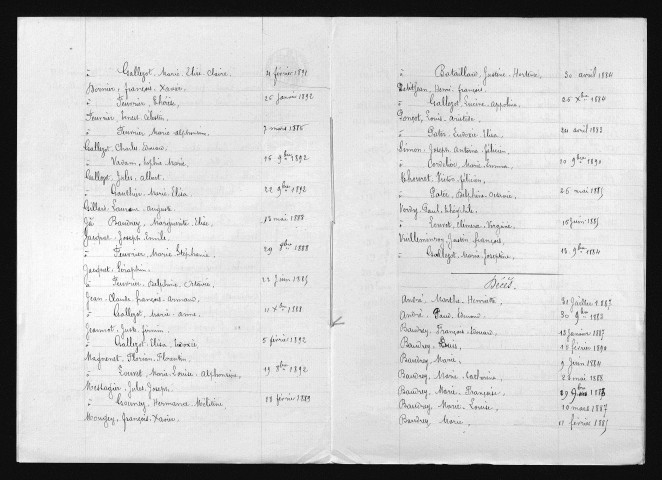 à Gallezot, Marie Elise Claire. 4 février 1891
Bonnier, françois Xavier.
à Feuvrier, Thérèse. 26 Janvier 1892
Feuvrier, Ernest Célestin.
à Feuvrier Marie alphonsine. 7 mars 1886
Gallezot, Charles Edouard.
à Vavam, Sophie Marie. 16 9bre 1892
Gallezot, Jules, albert.
à Gauthier, Marie, Elisa. 22 9bre 1892
Gillard, Laurent, auguste.
à Baudrey, Marguerite Elise. 13 mai 1888
Jacquot, Joseph Emile.
à Feuvrier, Marie Stéphanie. 29 1888
Jacquot, Séraphin.
à Feuvrier, Delphine, Octavie. 22 Juin 1885
Jean-Claude, françois armand.
à Gallezot, Marie-anne. 11 Xbre 1888
Jeannot, Juste, firmin.
à Gallezot, Elisa, 5 février 1892
Magnenet, Florian, Florentin.
à Marie-Louise, Alphonsine. 19 8bre 1892
Messagier, Jules, Joseph.
à Hermance, 28 février 1889
Mougey, françois-Xavier.
à Bataillard, Justine, Hortense. 30 avril 1884
Petitjean, Henri, françois.
à Gallezot, Lucine, appoline. 26 Xbre 1884
Ponçot, Louis, aristide.
à Elisa. 24 avril 1883
Simon, Joseph Antoine félicien.
à Cordelier, Marie, Emma. 20 9bre 1890
Thouret, Victor, félicien.
à 26 mai 1885
Paul, théophile.
à Louvet, Clémence, Virginie. 15 Juin 1885
Vuillemenot, Justin, françois.
à Gallezot, Marie Josephine. 13 9bre 1884
Décès.
André, Marthe, Henriette. 31 Juillet 1887
André, Paul, Edmond. 30 9bre 1883
Baudrey, François, Edouard. 13 Janvier 1887
Baudrey, Louis. 15 février 1890
Baudrey, Marie. 9 Juin 1884
Baudrey, Marie, Catherine. 20 mai 1888
Baudrey, Marie, Françoise. 29 9bre
Baudrey, Marie, Louise. 10 mars 1887
Baudrey, Marie. 11 février 1885